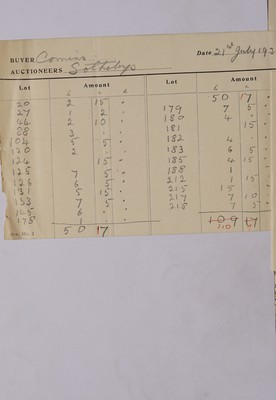 BUYER Comins Date 21st July 192
AUCTIONEERS Sothebys
Lot Amount
£ s d
20 2 15 "
27 1 2 "
46 2 10 "
88 3 " "
104 5 5 "
120 2 " "
124 15 "
125 7 5 "
126 6 5 "
131 5 15 "
153 7 5 "
165 6 " "
175 1 " "
50 17
Lot Amount
£ s d
50 17 "
179 7 5 "
180 4 " "
181 15 "
182 4 " "
183 6 5 "
185 4 15 "
188 1 " "
212 1 15 "
215 15 " "
217 7 10 "
218 7 5 "
109 17
110